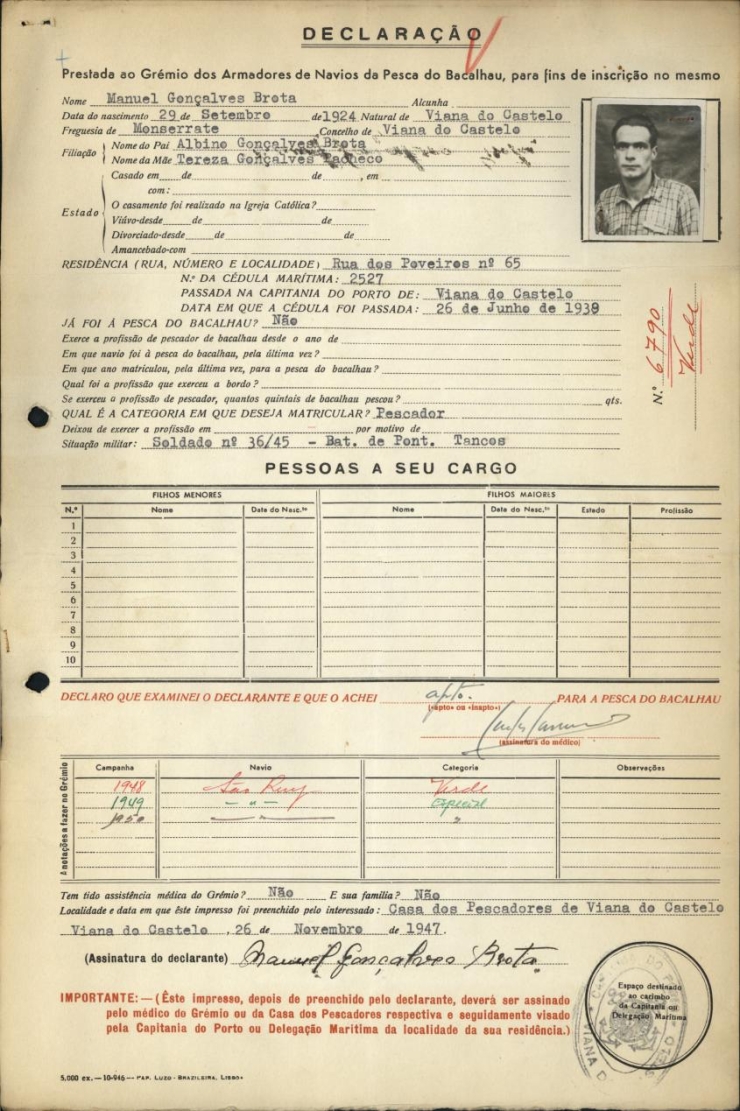 DECLARAÇÃO
Prestada ao Grémio dos Armadores de Navios da Pesca do Bacalhau, para fins de inscrição no mesmo
Nome Manuel Gonçalves Brota Alcunha
Data do nascimento 29 de Setembro de 1924 Natural de Viana do Castelo
Freguesia de Monserrate Concelho de Viana do Castelo
Filiação Nome do Pai Albino Gonçalves Brota
Nome da Mãe Tereza Gonçalves Pacheco
Estado
Casado em de de , em
com:
O casamento foi realizado na Igreja Católica?
Viúvo-desde de de
Divorciado-desde de de
Amancebado-com
RESIDÊNCIA (RUA, NÚMERO E LOCALIDADE) Rua dos Poveiros nº 65
N.º DA CÉDULA MARÍTIMA: 2527
PASSADA NA CAPITANIA DO PORTO DE: Viana do Castelo
DATA EM QUE A CÉDULA FOI PASSADA: 26 de Junho de 1938
JÁ FOI Á PESCA DO BACALHAU? Não
Exerce a profissão de pescador de bacalhau desde o ano de
Em que navio foi à pesca do bacalhau, pela última vez?
Em que ano matriculou, pela última vez, para a pesca do bacalhau?
Qual foi a profissão que exerceu a bordo?
Se exerceu a profissão de pescador, quantos quintais de bacalhau pescou? qts.
QUAL É A CATEGORIA EM QUE DESEJA MATRICULAR? Pescador
Deixou de exercer a profissão em por motivo de
Situação militar: Soldado nº 36/45 - Bat. de Pont. Tancos
N.º 6790
Verde
PESSOAS A SEU CARGO
FILHOS MENORES FILHOS MAIORES
N.º Nome Data do Nasc.to Nome Data do Nasc.to Estado Profissão
1
2
3
4
5
6
7
8
9
10
DECLARO QUE EXAMINEI O DECLARANTE E QUE O ACHEI apto. PARA A PESCA DO BACALHAU
(«apto» ou «inapto»)
(assinatura do médico)
Anotações a fazer no Grémio
Campanha Navio Categoria Observações
1948 São Ruy Verde
1949 - " - Especial
1950 "
Tem tido assistência médica do Grémio? Não E sua família? Não
Localidade e data em que êste impresso foi preenchido pelo interessado: Casa dos Pescadores de Viana do Castelo
Viana do Castelo , 26 de Novembro de 1947.
(Assinatura do declarante) Manuel Gonçalves Brota
Espaço destinado
ao carimbo
da Capitania ou
Delegação Marítima
IMPORTANTE: — (Êste impresso, depois de preenchido pelo declarante, deverá ser assinado
pelo médico do Grémio ou da Casa dos Pescadores respectiva e seguidamente visado
pela Capitania do Porto ou Delegação Marítima da localidade da sua residência.)
5.000 ex. — 10-946 — PAP. LUZO-BRAZILEIRA, LISBOA